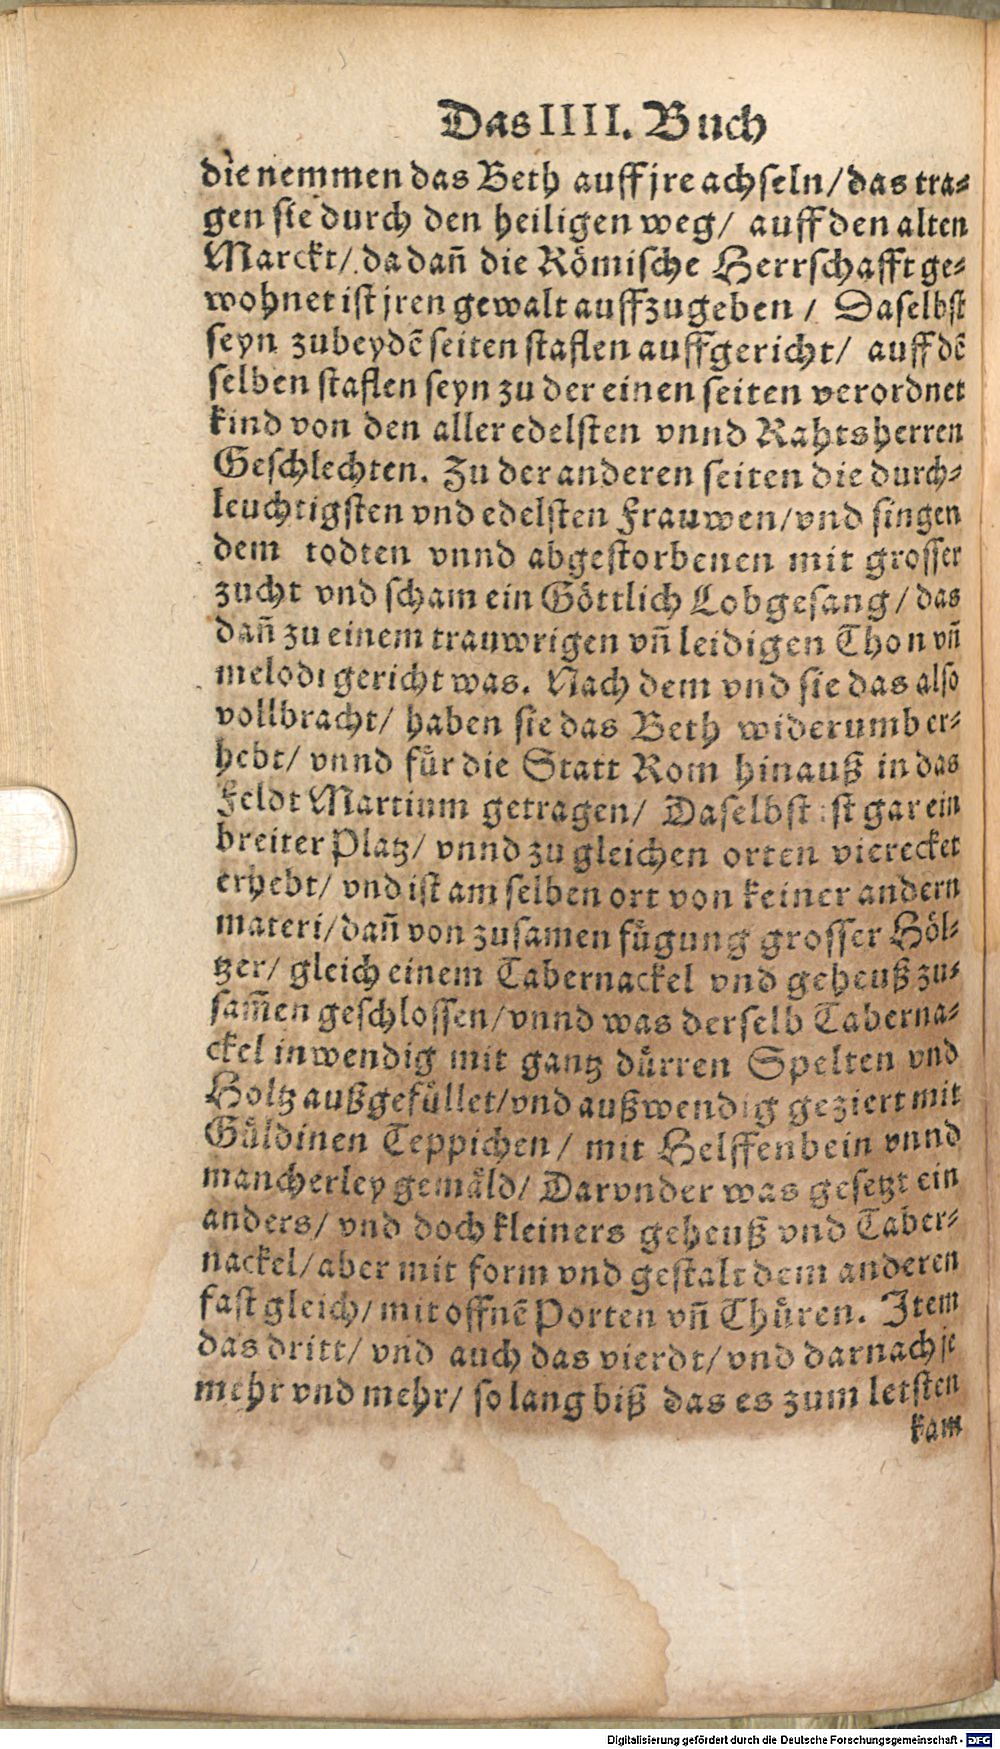 Das IIII. Buch
die nemmen das Beth auff jre achseln/ das tra-
gen sie durch den heiligen weg/ auff den alten
Marckt/ da dañ die Römische Herrschafft ge-
wohnet ist jren gewalt auffzugeben / Daselbst
seyn zubeydẽ seiten staflen auffgericht/ auff dẽ
selben staflen seyn zu der einen seiten verordnet
kind von den aller edelsten vnnd Rahtsherren
Geschlechten. Zu der anderen seiten die durch-
leuchtigsten vnd edelsten Frauwen/ vnd singen
dem todten vnnd abgestorbenen mit grosser
zucht vnd scham ein Göttlich Lobgesang/ das
dañ zu einem trauwrigen vñ leidigen Thon vñ
melodi gericht was. Nach dem vnd sie das also
vollbracht/ haben sie das Beth widerumb er-
hebt/ vnnd für die Statt Rom hinauß in das
Feldt Martium getragen/ Daselbst ist gar ein
breiter Platz/ vnnd zu gleichen orten vierecket
erhebt/ vnd ist am selben ort von keiner andern
materi/ dañ von zusamen fügung grosser Höl-
tzer/ gleich einem Tabernackel vnd geheuß zu-
sam̃en geschlossen/ vnnd was derselb Taberna-
ckel inwendig mit gantz dürren Spelten vnd
Holtz außgefüllet/ vnd außwendig geziert mit
Güldinen Teppichen/ mit Helffenbein vnnd
mancherley gemäld/ Darvnder was gesetzt ein
anders/ vnd doch kleiners geheuß vnd Taber-
nackel/ aber mit form vnd gestalt dem anderen
fast gleich/ mit offnẽ Porten vñ Thüren. Item
das dritt/ vnd auch das vierdt/ vnd darnach je
mehr vnd mehr/ so lang biß das es zum letsten
kam
Digitalisierung gefördert durch die Deutsche Forschungsgemeinschaft - DFG